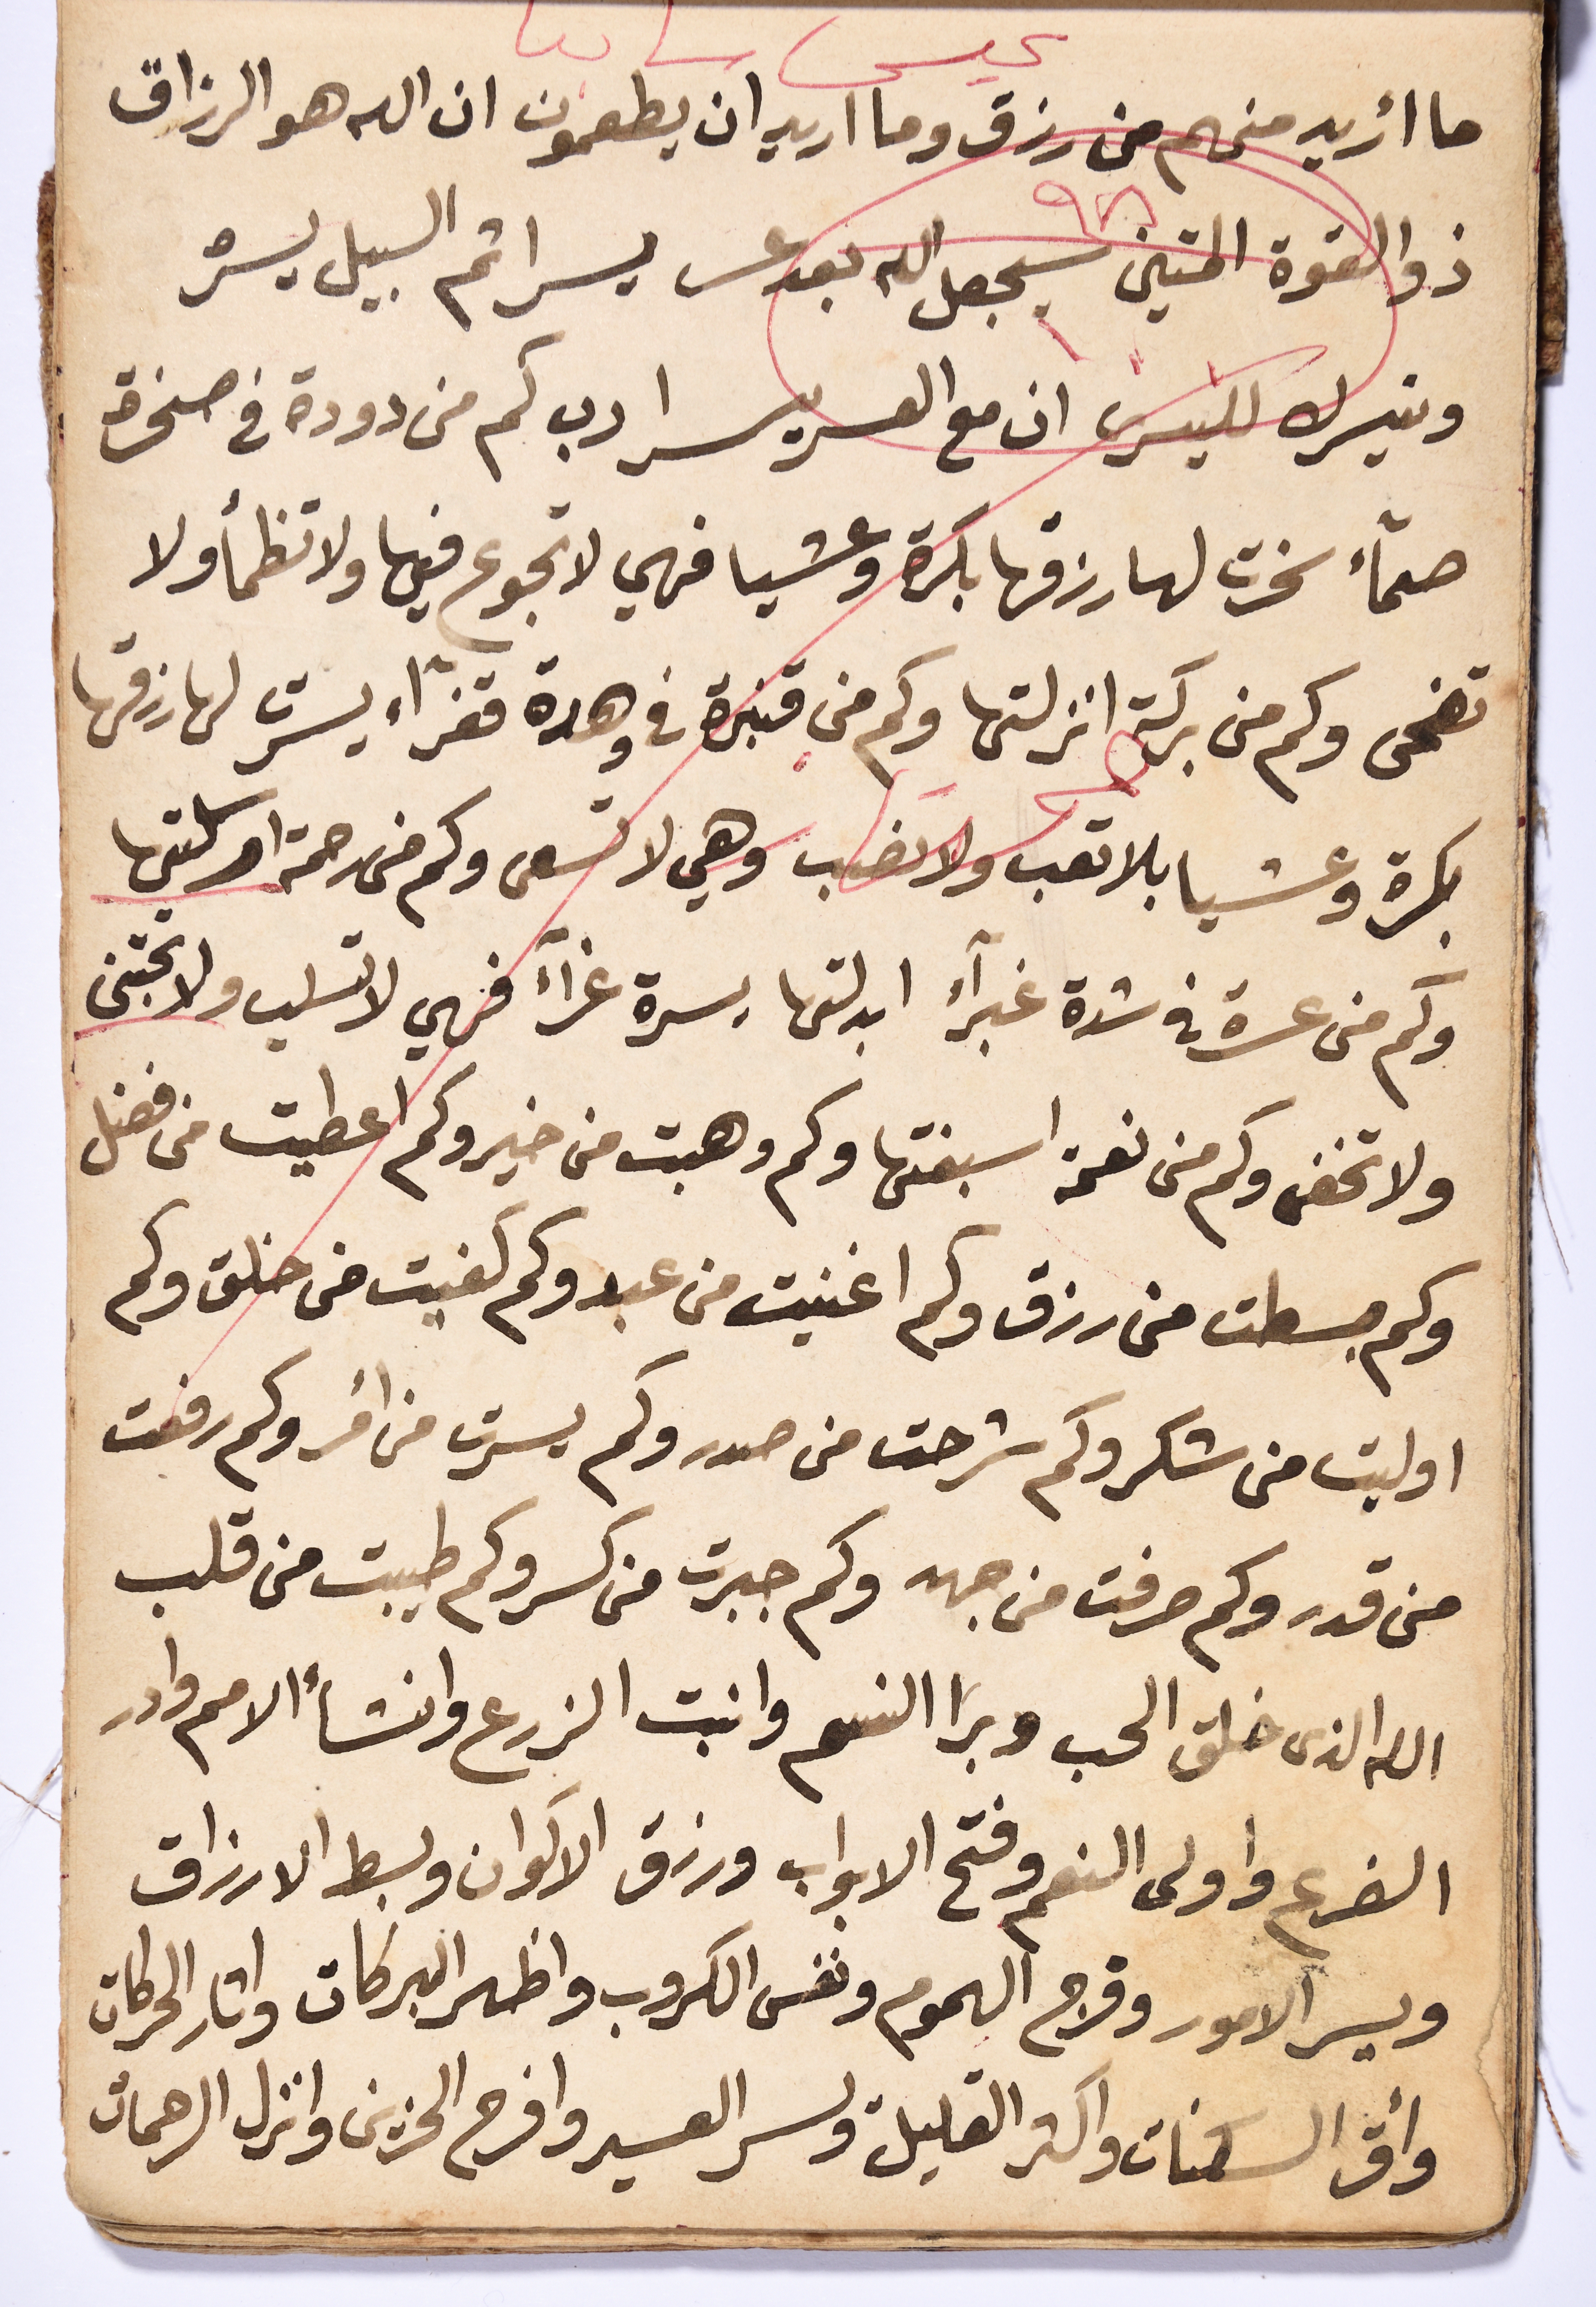 ما أريد منهم من رزق وما اريد ان يطعمون ان الله هو الرزاق
ذو القوة المتين سيجعل الله بعد عسر يسرا ثم السبيل يسره
ونيسرك لليسرى ان مع العسر يسرا رب كم من دودة في صخرة
صمآء سخرت لها رزقها بكرة وعشيا فهي لا تجوع فيها ولا تظمأ ولا
تضحى وكم من بركة انزلتها وكم من قنبرة في وهدة قفرآء يسرت لها رزقها
بكرة وعشيا بلا تعب ولا نصب وهي لا تسعى وكم من رحمة ارسلتها
وكم من عسرة في شدة غبرآء ابدلتها يسرة غرآء فهي لا تسلب ولا تجتنى
ولا تخفى وكم من نعمة اسبغتها وكم وهبت من خير وكم اعطيت من فضل
وكم بسطت من رزق وكم اغنيت من عبد وكم كفيت من خلق وكم
اوليت من شكر وكم شرحت من صدر وكم يسرت من أمر وكم رفعت
من قدر وكم صرفت من جهد وكم جبرت من كسر وكم طيبت من قلب
الله الذى خلق الحب وبرا النسم وانبت الزرع وانشأ الامم وادر
الضرع واولى النعم وفتح الابواب ورزق الاكوان وبسط الارزاق
ويسر الامور وفرج الهموم ونفس الكروب واظهر البركات واثار الحركات
وأقر السكنات واكثر القليل ويسر العسير وافرح الحزين وانزل الرحمات